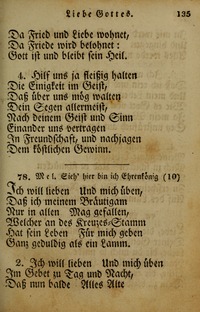 Liebe Gottes. 135
Da Fried und Liebe wohnet,
Da Friede wird belohnet:
Gott ist und bleibt sein Heil.
4. Hilf uns ja fleißig halten
Die Einigkeit im Geist,
Daß über uns mög walten
Dein Segen allermeist,
Nach deinem Geist und Sinn
Einander uns vertragen
In Freundschaft, und nachjagen
Dem köstlichen Gewinn.
78. Mel. Sieh' hier bin ich Ehrenkönig (10)
Ich will lieben Und mich üben,
Daß ich meinem Bräutigam
Nur in allen Mag gefallen,
Welcher an des Kreuzes-Stamm
Hat sein Leben Für mich geben
Ganz geduldig als ein Lamm.
2. Ich will lieben Und mich üben
Im Gebet zu Tag und Nacht,
Daß nun balde Alles Alte